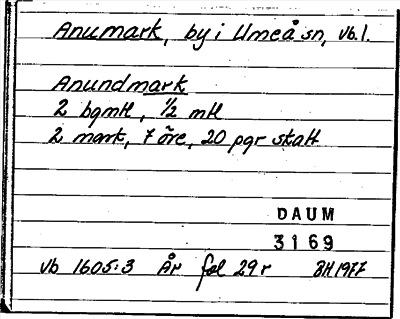 Anumark, by i Umeå sn, Vb.l.
Anundmark
2 bgmtl, 1/2 mtl
2 mark, 7 öre, 20 pgr skatt
DAUM
3169
Vb 1605:3 År fol 29r BH 1977